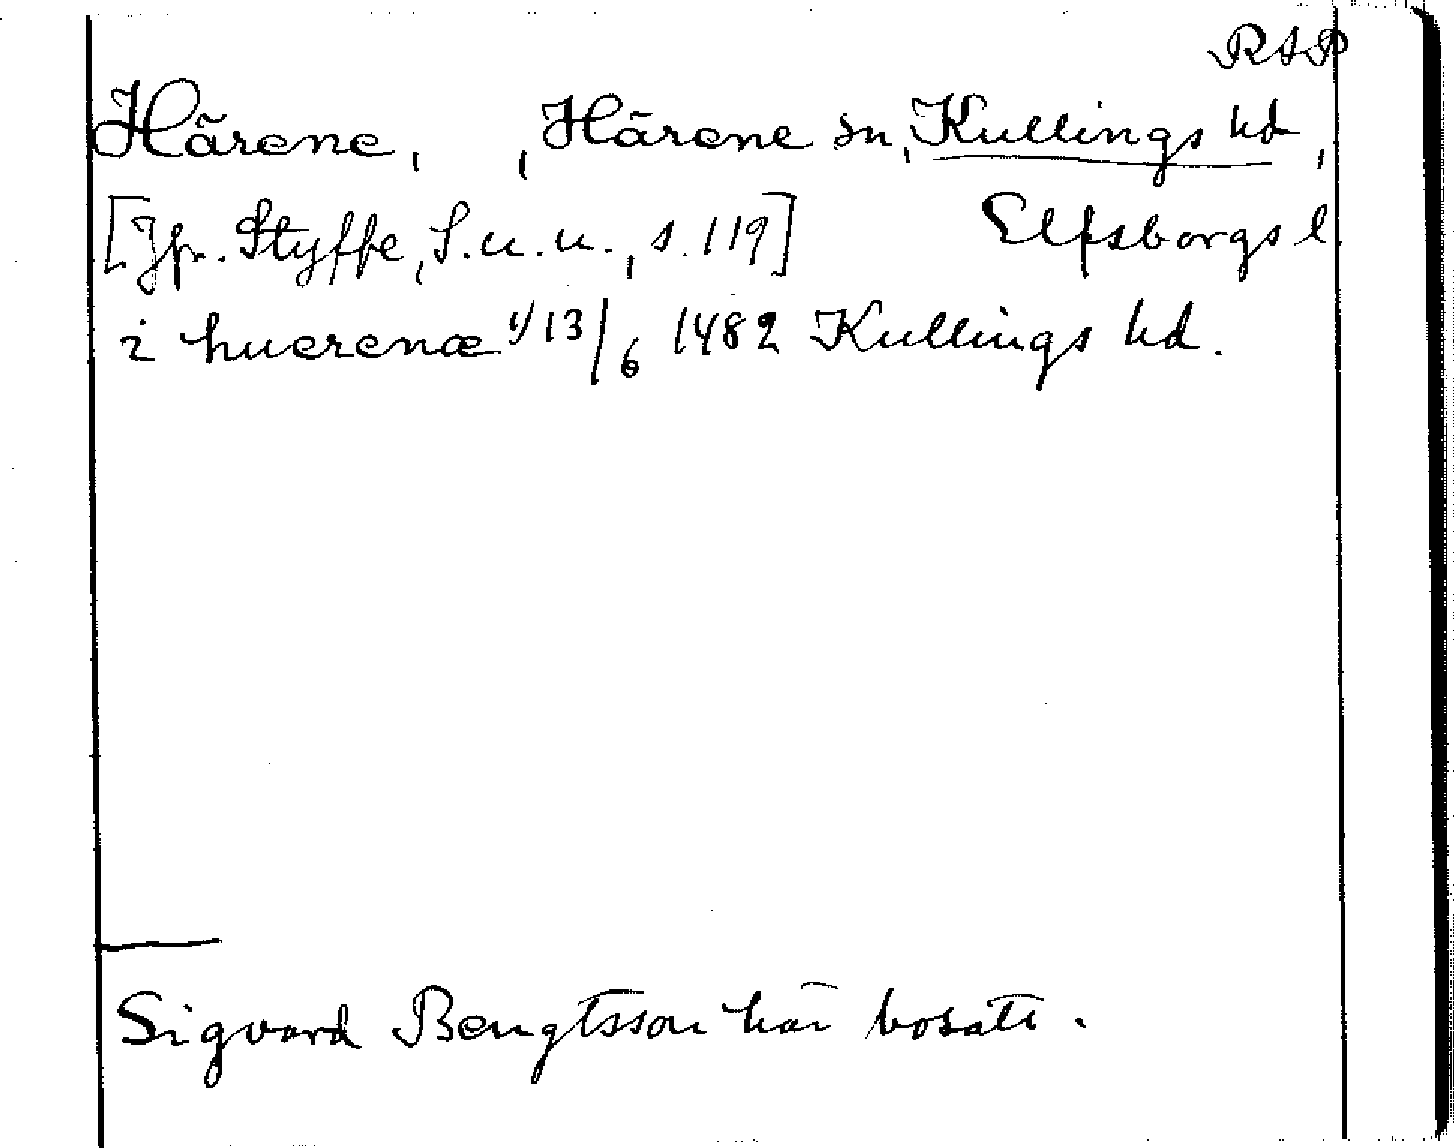 RAP
Härene, , Härene sn, Kullings hd,
[Jfr. Styffe, S.u.u., s. 119] Elfsborgs l.
i huerenæ 1/ 13/6 1482 Kullings hd.
Sigvard Bengtsson här bosatt.